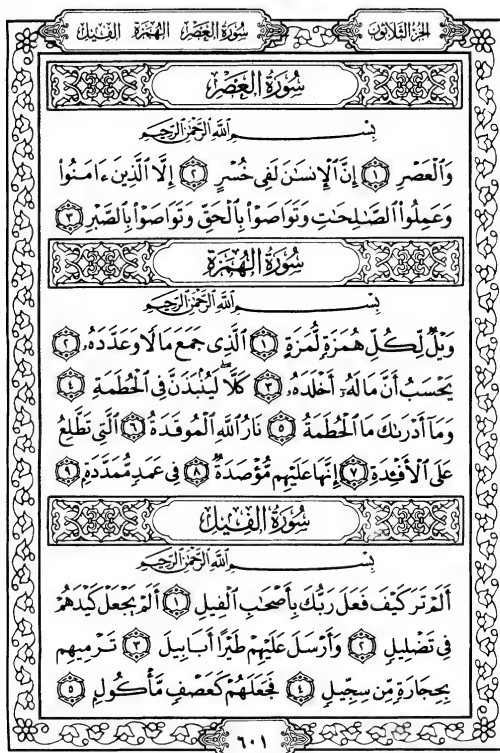 الجزء الثلاثون سورة العصر الهمزة الفيل
سُورَةُ العَصْرِ
بِسْمِ اللَّهِ الرَّحْمَٰنِ الرَّحِيمِ
وَٱلْعَصْرِ ١ إِنَّ ٱلْإِنسَٰنَ لَفِى خُسْرٍ ٢ إِلَّا ٱلَّذِينَ ءَامَنُوا۟
وَعَمِلُوا۟ ٱلصَّٰلِحَٰتِ وَتَوَاصَوْا۟ بِٱلْحَقِّ وَتَوَاصَوْا۟ بِٱلصَّبْرِ ٣
سُورَةُ الهُمَزَةِ
بِسْمِ اللَّهِ الرَّحْمَٰنِ الرَّحِيمِ
وَيْلٌ لِّكُلِّ هُمَزَةٍ لُّمَزَةٍ ١ ٱلَّذِى جَمَعَ مَالًا وَعَدَّدَهُۥ ٢
يَحْسَبُ أَنَّ مَالَهُۥٓ أَخْلَدَهُۥ ٣ كَلَّا ۖ لَيُنۢبَذَنَّ فِى ٱلْحُطَمَةِ ٤
وَمَآ أَدْرَىٰكَ مَا ٱلْحُطَمَةُ ٥ نَارُ ٱللَّهِ ٱلْمُوقَدَةُ ٦ ٱلَّتِى تَطَّلِعُ
عَلَى ٱلْأَفْـِٔدَةِ ٧ إِنَّهَا عَلَيْهِم مُّؤْصَدَةٌ ٨ فِى عَمَدٍ مُّمَدَّدَةٍۭ ٩
سُورَةُ الفِيلِ
بِسْمِ اللَّهِ الرَّحْمَٰنِ الرَّحِيمِ
أَلَمْ تَرَ كَيْفَ فَعَلَ رَبُّكَ بِأَصْحَٰبِ ٱلْفِيلِ ١ أَلَمْ يَجْعَلْ كَيْدَهُمْ
فِى تَضْلِيلٍ ٢ وَأَرْسَلَ عَلَيْهِمْ طَيْرًا أَبَابِيلَ ٣ تَرْمِيهِم
بِحِجَارَةٍ مِّن سِجِّيلٍ ٤ فَجَعَلَهُمْ كَعَصْفٍ مَّأْكُولٍۭ ٥
٦٠١